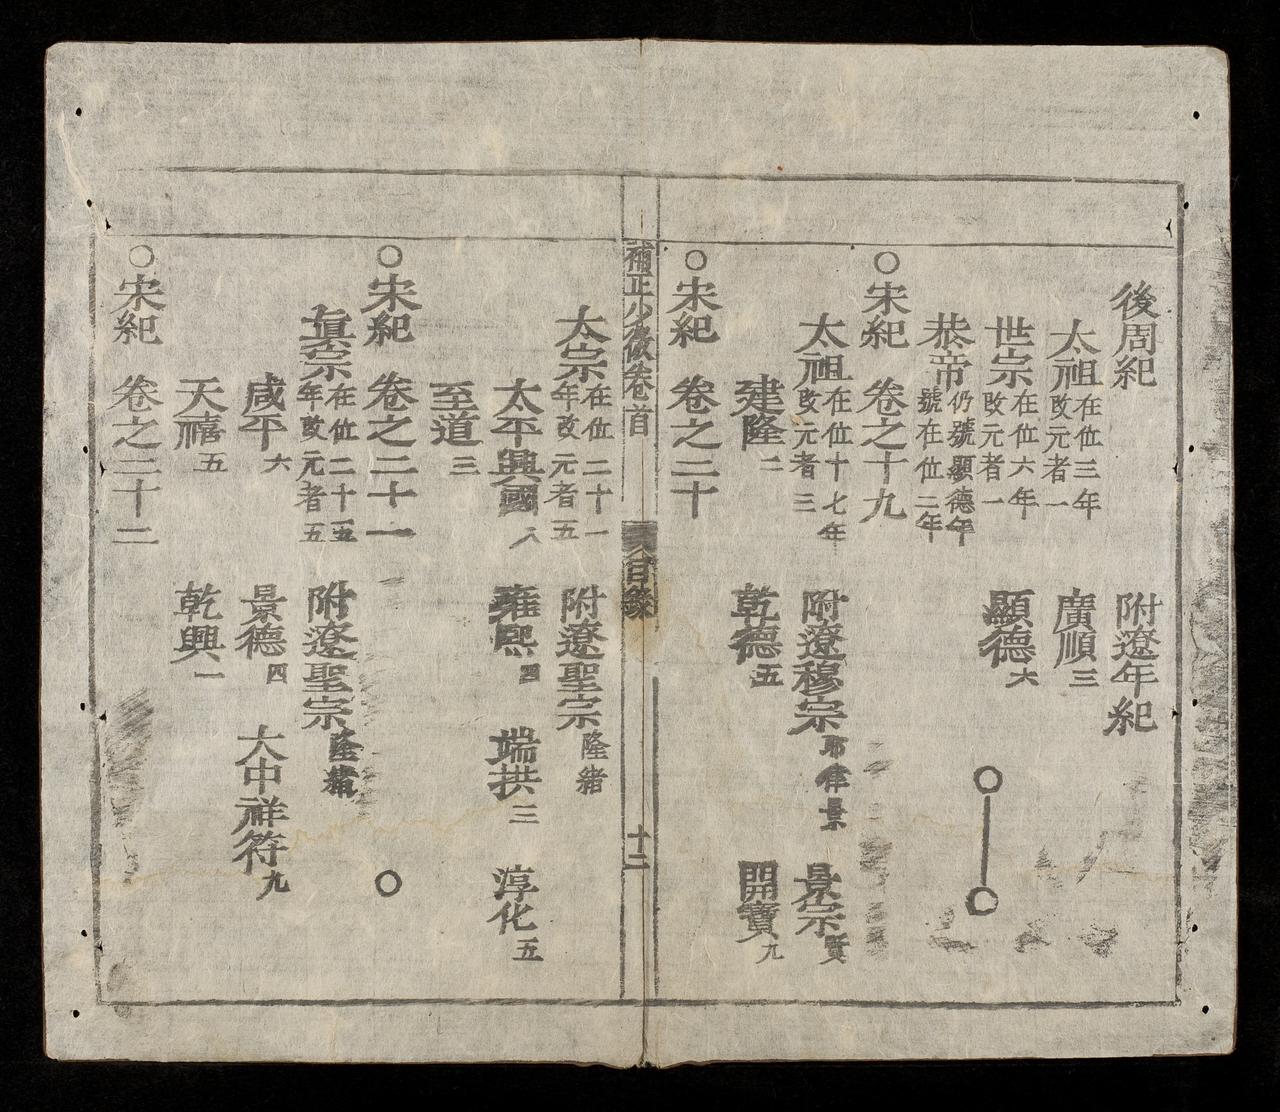 後周紀 附遼年紀
太祖在位三年改元者一 廣順三
世宗在位六年改元者一 顯德六
恭帝仍號顯德年號在位二年
○宋紀 卷之十九
太祖在位十七年改元者三 附遼穆宗耶律景 景宗賢
建隆二 乾德五 開寶九
○宋紀 卷之二十
補正少微卷首 目錄 十二
太宗在位二十一年改元者五 附遼聖宗隆緒
太平興國八 雍熙四 端拱三 淳化五
至道三
○宋紀 卷之二十一
眞宗在位二十五年改元者五 附遼聖宗隆緒
咸平六 景德四 大中祥符九
天禧五 乾興一
○宋紀 卷之二十二